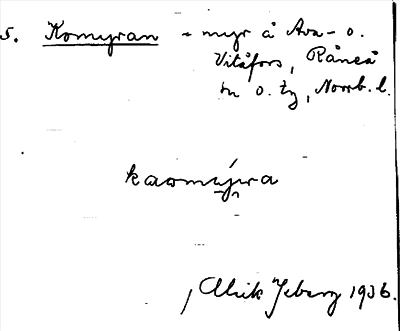 5. Komyran - myr å Ava- o.
Vitåfors, Råneå
sn o. tg, Norrb. l.
kaomýra
Ulrik 1936.